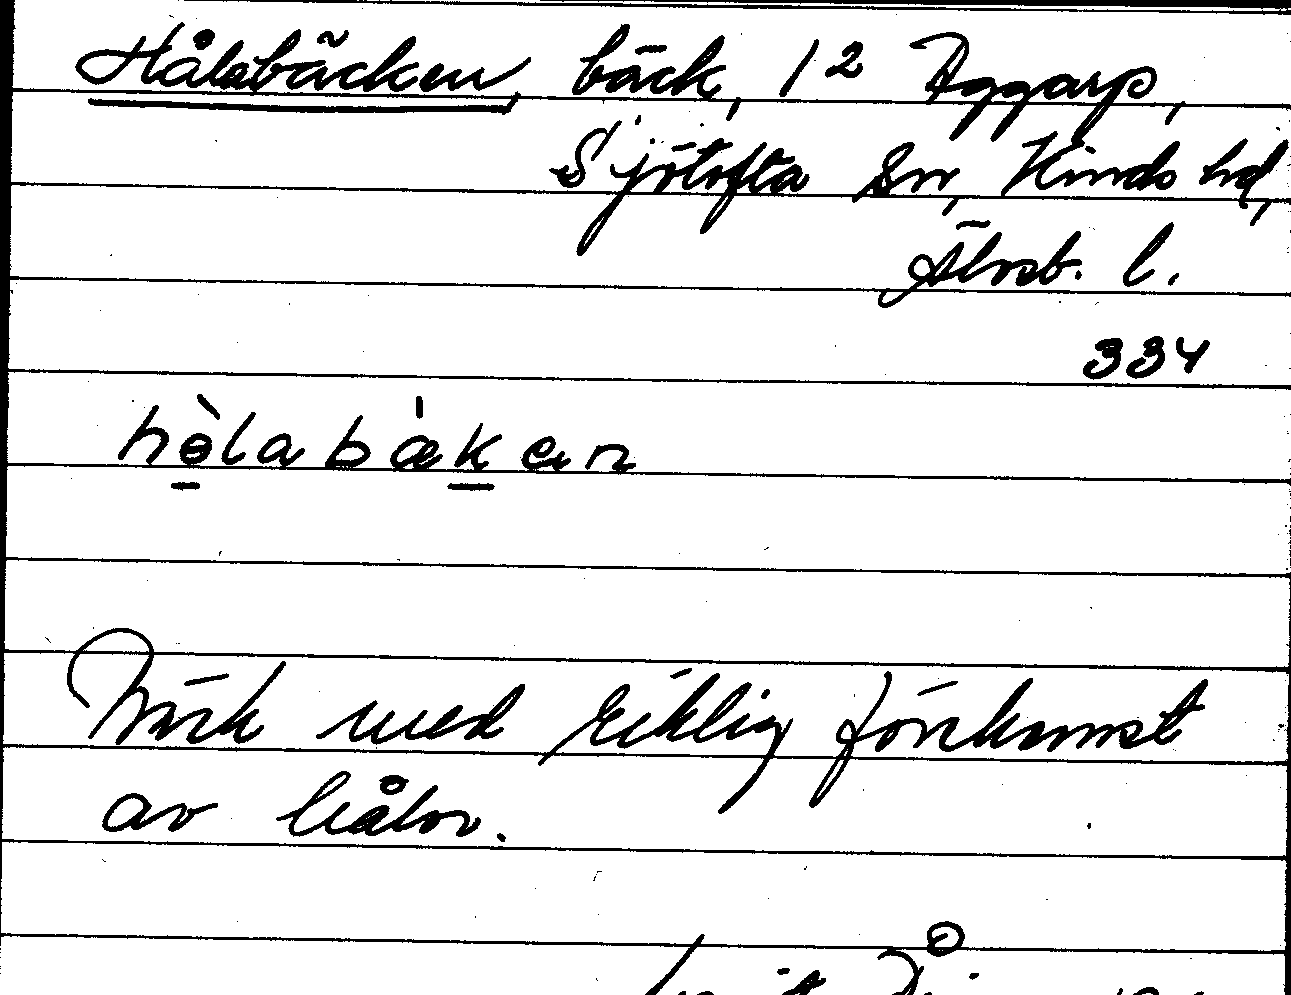 Hålabäcken, bäck, 1² Aggarp,
Sjötofta sn, Kinds hd,
Älvsb. l.
334
hòlabákan
Bäck med riklig förekomst
av hålor.